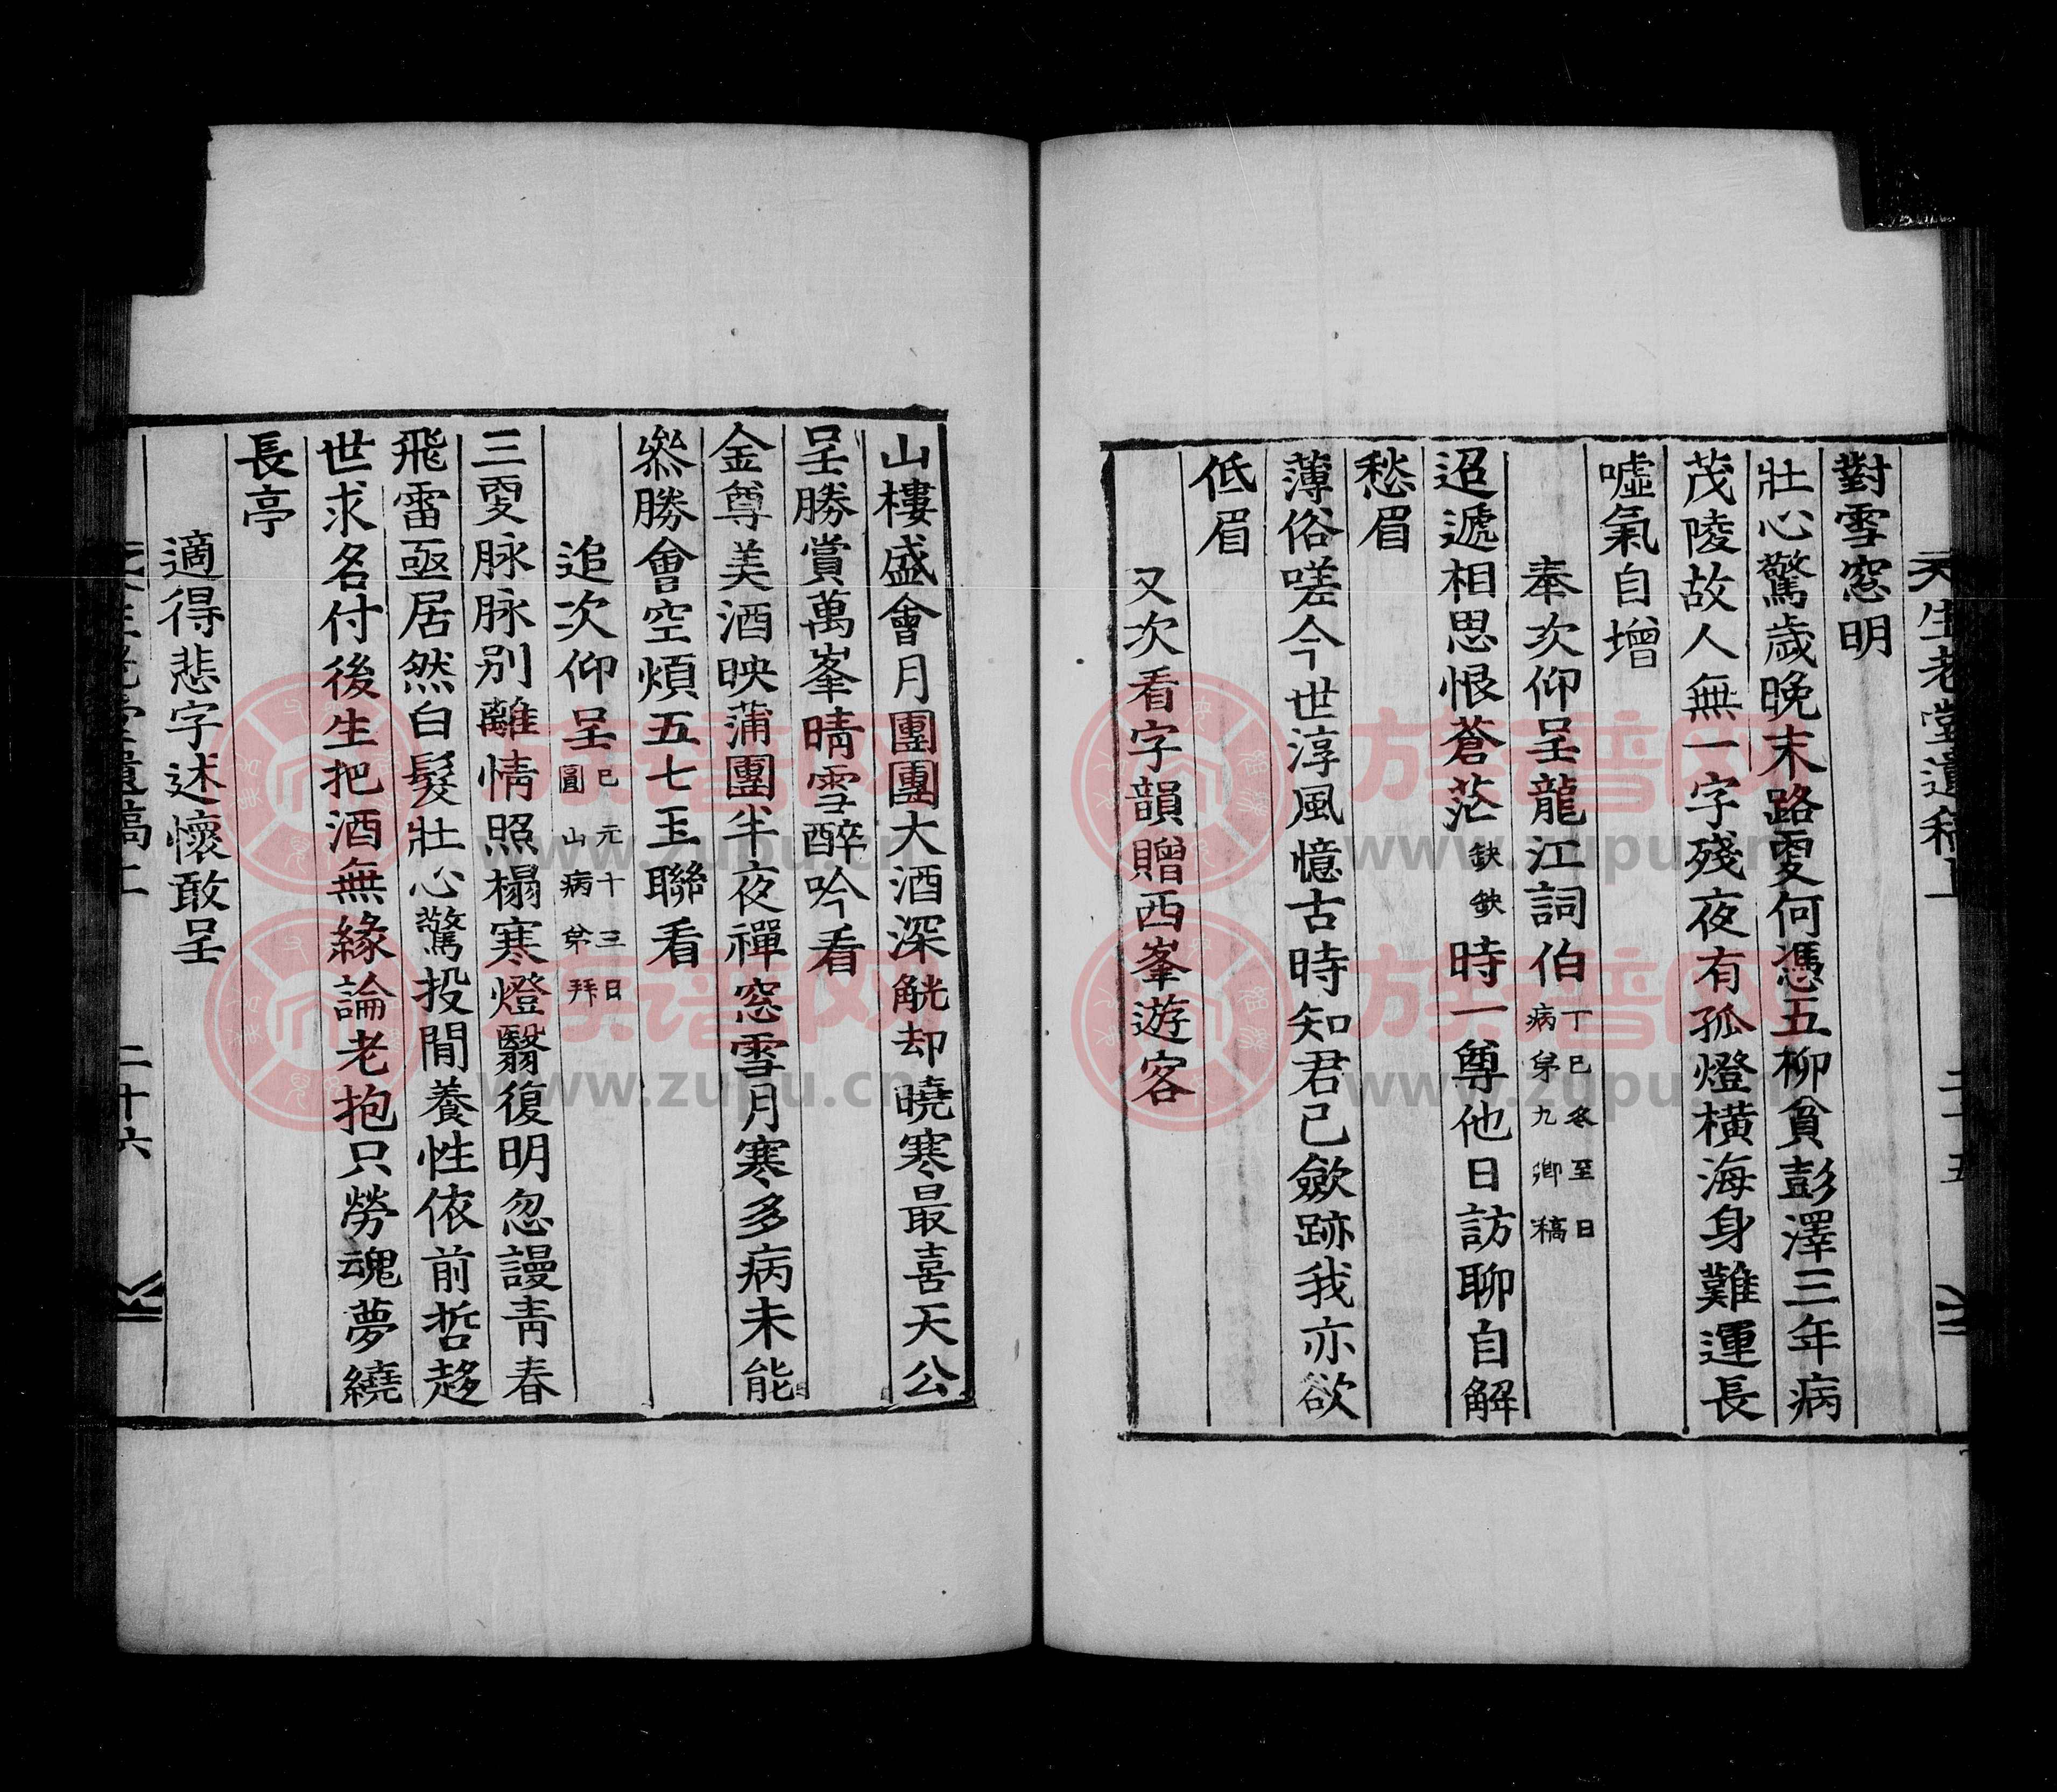 天生老堂遺稿上
二十五
對雪窓明
壯心驚歲晚末路雯何憑五柳貧彭澤三年病
茂陵故人無一字殘夜有孤燈橫海身難運長
噓氣自增
奉次仰呈龍江詞伯丁巳冬至日病弟九卿稿
迢遞相思恨蒼茫缺缺時一尊他日訪聊自解
愁眉
薄俗嗟今世淳風憶古時知君已歛跡我亦欲
低眉
又次看字韻贈西峯遊客
山樓盛會月團團大酒深觥却曉寒最喜天公
呈勝賞萬峯晴雪醉吟看
金尊美酒映蒲團半夜禪窓雪月寒多病未能
叅勝會空煩五七玉聯看
追次仰呈已元十三日圓山病弟拜
三雯脉脉別離情照榻寒燈翳復明忽謾靑春
飛雷亟居然白髮壯心驚投閒養性依前哲趍
世求名付後生把酒無緣論老抱只勞魂夢繞
長亭
適得悲字述懷敢呈
二十六
族谱网
www.zupu.cn
族谱网
www.zupu.cn
族谱网
www.zupu.cn
族谱网
www.zupu.cn